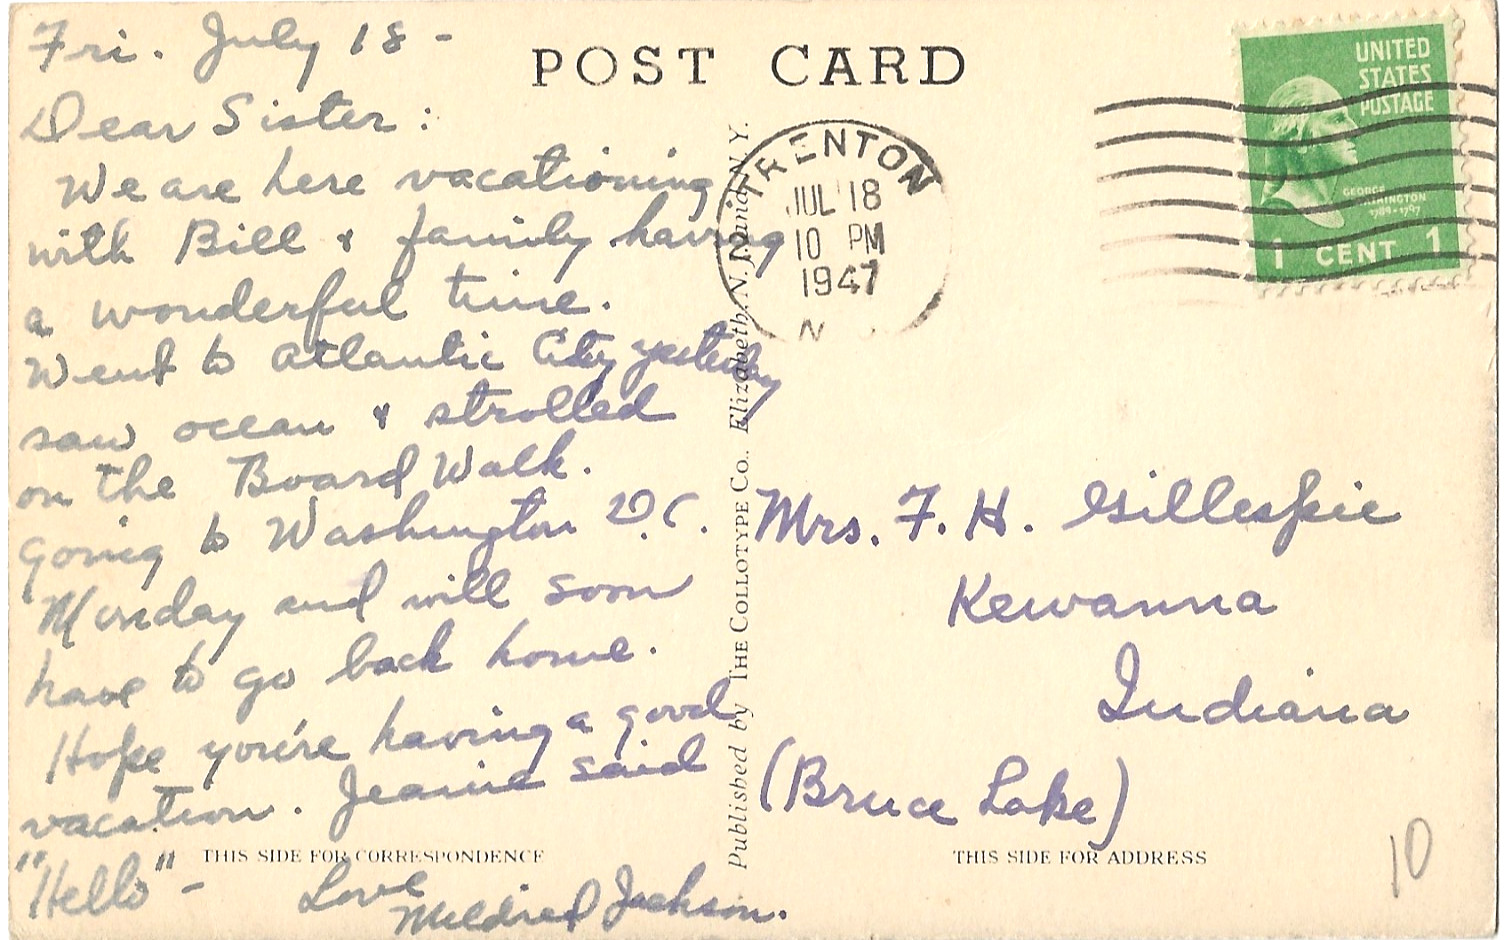 Fri. July 18 -
Dear Sister:
We are here vacationing
with Bill & family having
a wonderful time.
Went to Atlantic City yesterday
saw ocean & strolled
on the Board Walk.
Going to Washington D.C.
Monday and will soon
have to go back home.
Hope you're having a good
vacation. Jeanie said
"Hello" - Love
Mildred Jackson.
POST CARD
THIS SIDE FOR CORRESPONDENCE
Published by THE COLLOTYPE CO., Elizabeth, N. J. and N. Y.
TRENTON
JUL 18
10 PM
1947
N
UNITED
STATES
POSTAGE
GEORGE
WASHINGTON
1789-1797
1 CENT 1
Mrs. F. H. Gillespie
Kewanna
Indiana
(Bruce Lake)
THIS SIDE FOR ADDRESS
10